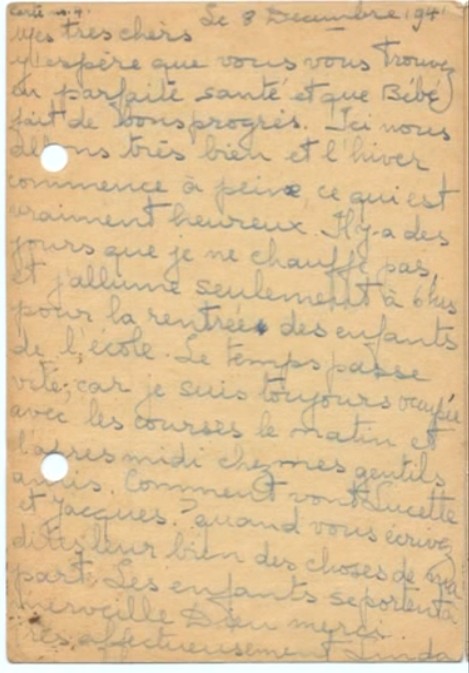 Carte n° 4 Le 8 Decembre 1941
Mes tres chers
J'espère que vous vous trouvez
en parfaite santé et que Bébé
fait de bons progrès. Ici nous
allons très bien et l'hiver
commence à peine, ce qui est
vraiment heureux. Il y a des
jours que je ne chauffe pas,
et j'allume seulement à 6 hrs
pour la rentrée des enfants
de l'école. Le temps passe
vite, car je suis toujours occupée
avec les courses le matin et
l'apres midi chez mes gentils
amis. Comment vont Lucette
et Jacques? quand vous écrivez
dites leur bien des choses de ma
part. Les enfants se portent à
merveille Dieu merci.
Très affectueusement Linda